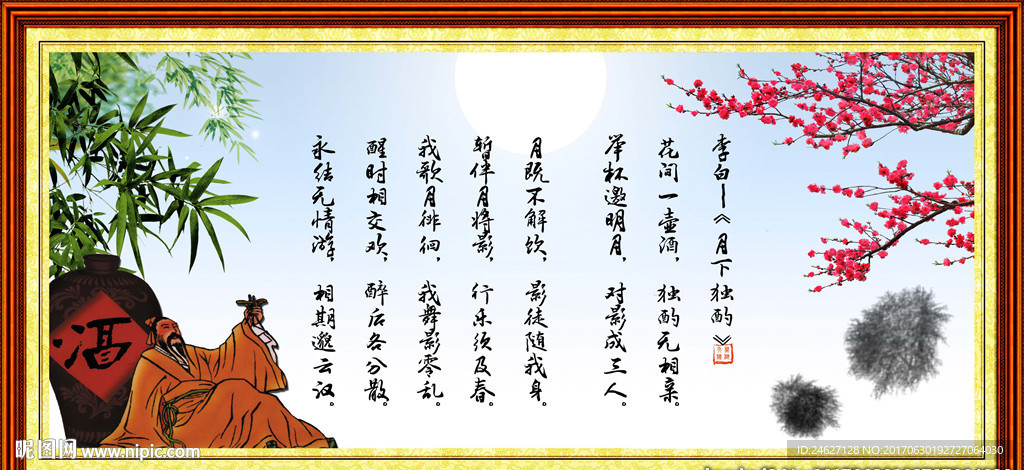 李白—《月下独酌》
花间一壶酒，独酌无相亲。
举杯邀明月，对影成三人。
月既不解饮，影徒随我身。
暂伴月将影，行乐须及春。
我歌月徘徊，我舞影零乱。
醒时相交欢，醉后各分散。
永结无情游，相期邈云汉。
酒
昵图网 www.nipic.com
ID:24627128 NO:20170630192727064030